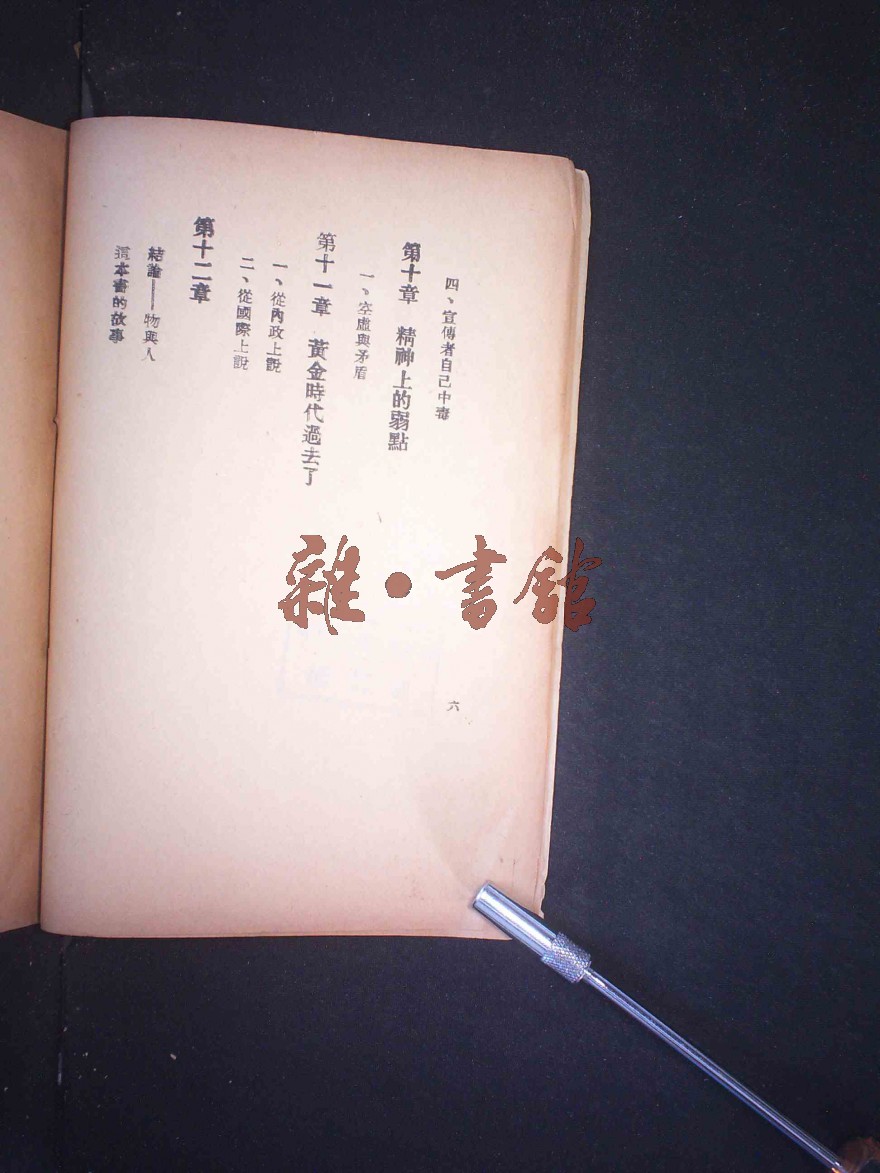 四、宣傳者自己中毒
第十章 精神上的弱點
一、空虛與矛盾
第十一章 黃金時代過去了
一、從內政上說
二、從國際上說
第十二章
結論——物與人
這本書的故事
六
雜·書館